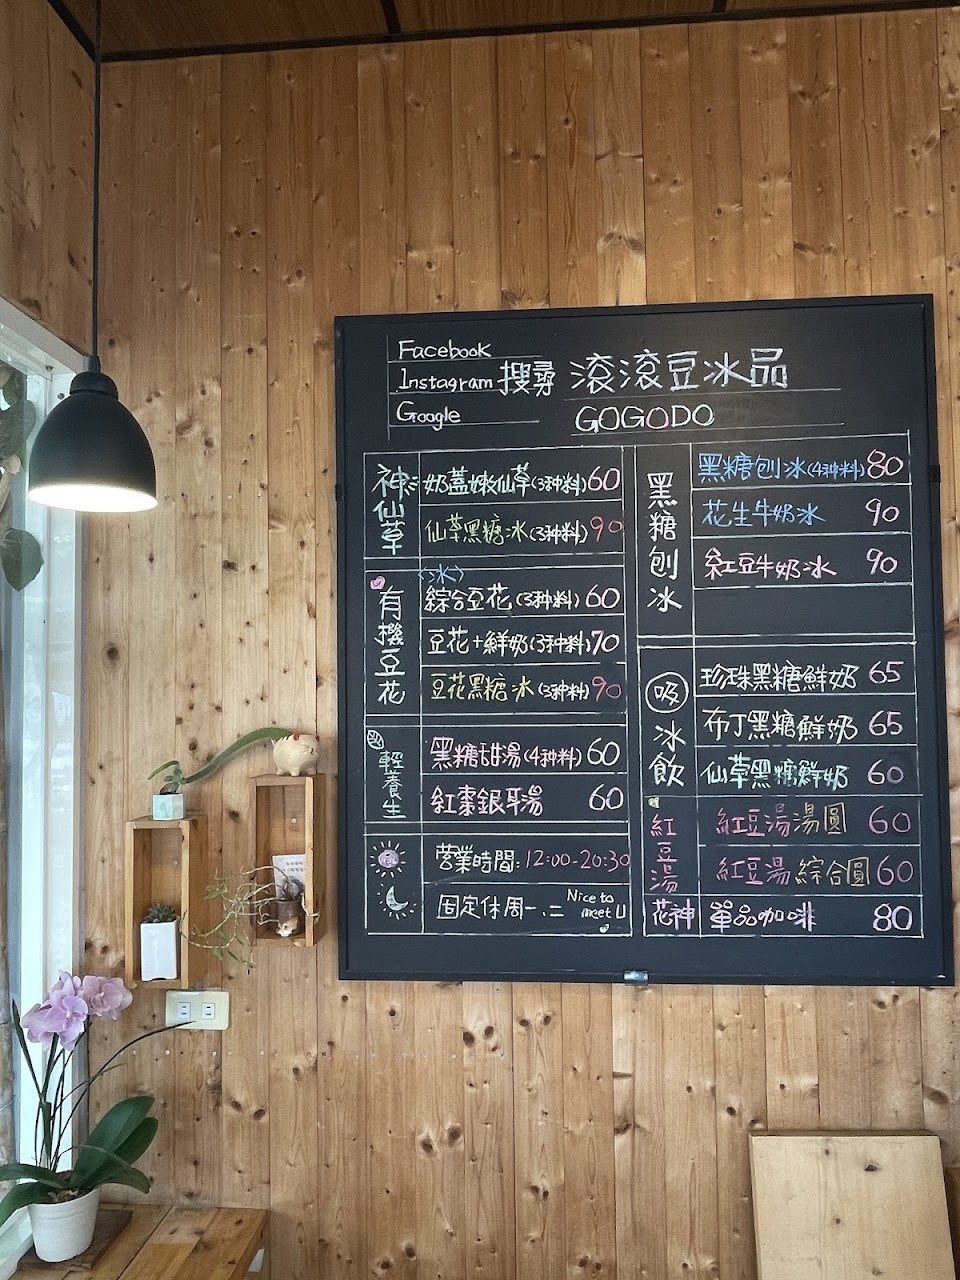 Facebook
Instagram 搜尋 滾滾豆冰品
Google GOGODO
神仙草
奶蓋嫩仙草(3种料) 60
仙草黑糖冰(3种料) 90
有機豆花
〈冰〉
綜合豆花(3种料) 60
豆花+鮮奶(3种料) 70
豆花黑糖冰(3种料) 90
輕養生
黑糖甜湯(4种料) 60
紅棗銀耳湯 60
營業時間:12:00-20:30
固定休周一、二 Nice to
meet U
黑糖刨冰
黑糖刨冰(4种料) 80
花生牛奶冰 90
紅豆牛奶冰 90
吸冰飲
珍珠黑糖鮮奶 65
布丁黑糖鮮奶 65
仙草黑糖鮮奶 60
紅豆湯
紅豆湯湯圓 60
紅豆湯綜合圓 60
花神 單品咖啡 80